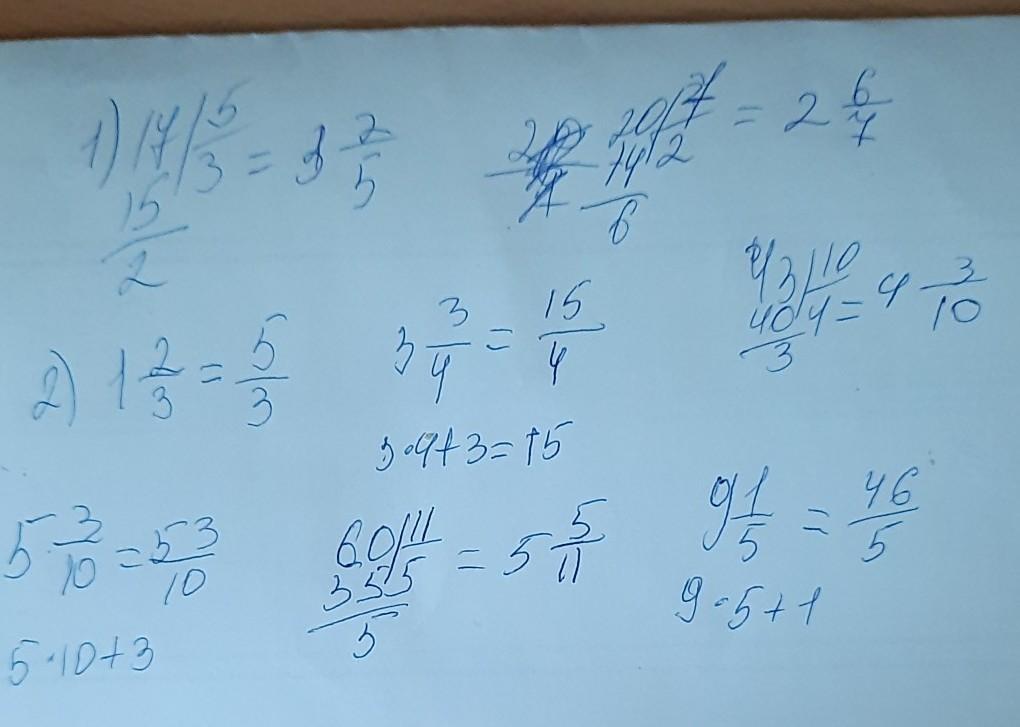 1) 17 | 5/3 = 3 2/5
15
2
20 | 7/2 = 2 6/7
14
6
43 | 10/4 = 4 3/10
40
3
2) 1 2/3 = 5/3
3 3/4 = 15/4
3·4+3=15
5 3/10 = 53/10
5·10+3
60 | 11/5 = 5 5/11
55
5
9 1/5 = 46/5
9·5+1